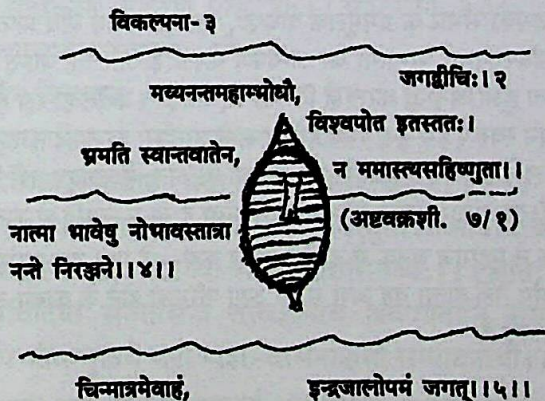 विकल्पना-३
जगद्वीचिः।२
मय्यनन्तमहाम्भोधौ,
विश्वपोत इतस्ततः।
भ्रमति स्वान्तवातेन,
न ममास्त्यसहिष्णुता।।
(अष्टवक्रशी. ७/१)
नात्मा भावेषु नोभावस्तात्रा
नन्ते निरञ्जने।।४।।
चिन्मात्रमेवाहं, इन्द्रजालोपमं जगत्।।५।।